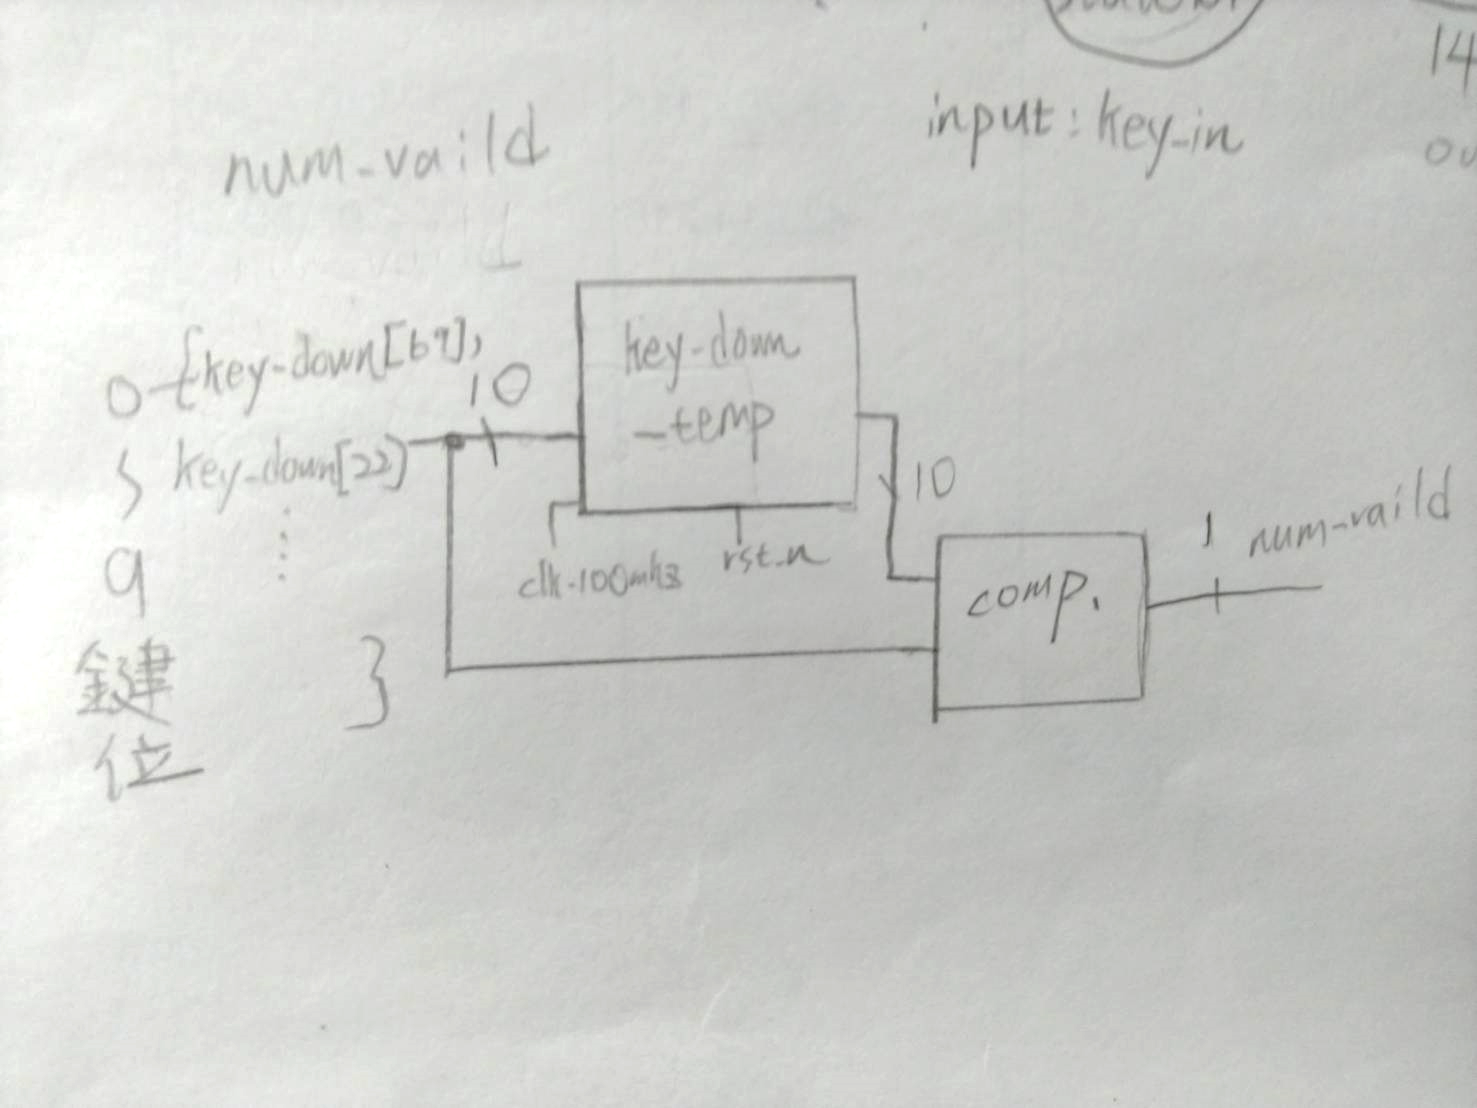 input: key_in
14
num-vaild
0~9鍵位
{key-down[69],
key-down[22]
⋮
}
10
key-down
-temp
clk-100mhz
rst_n
10
comp.
1
num-vaild